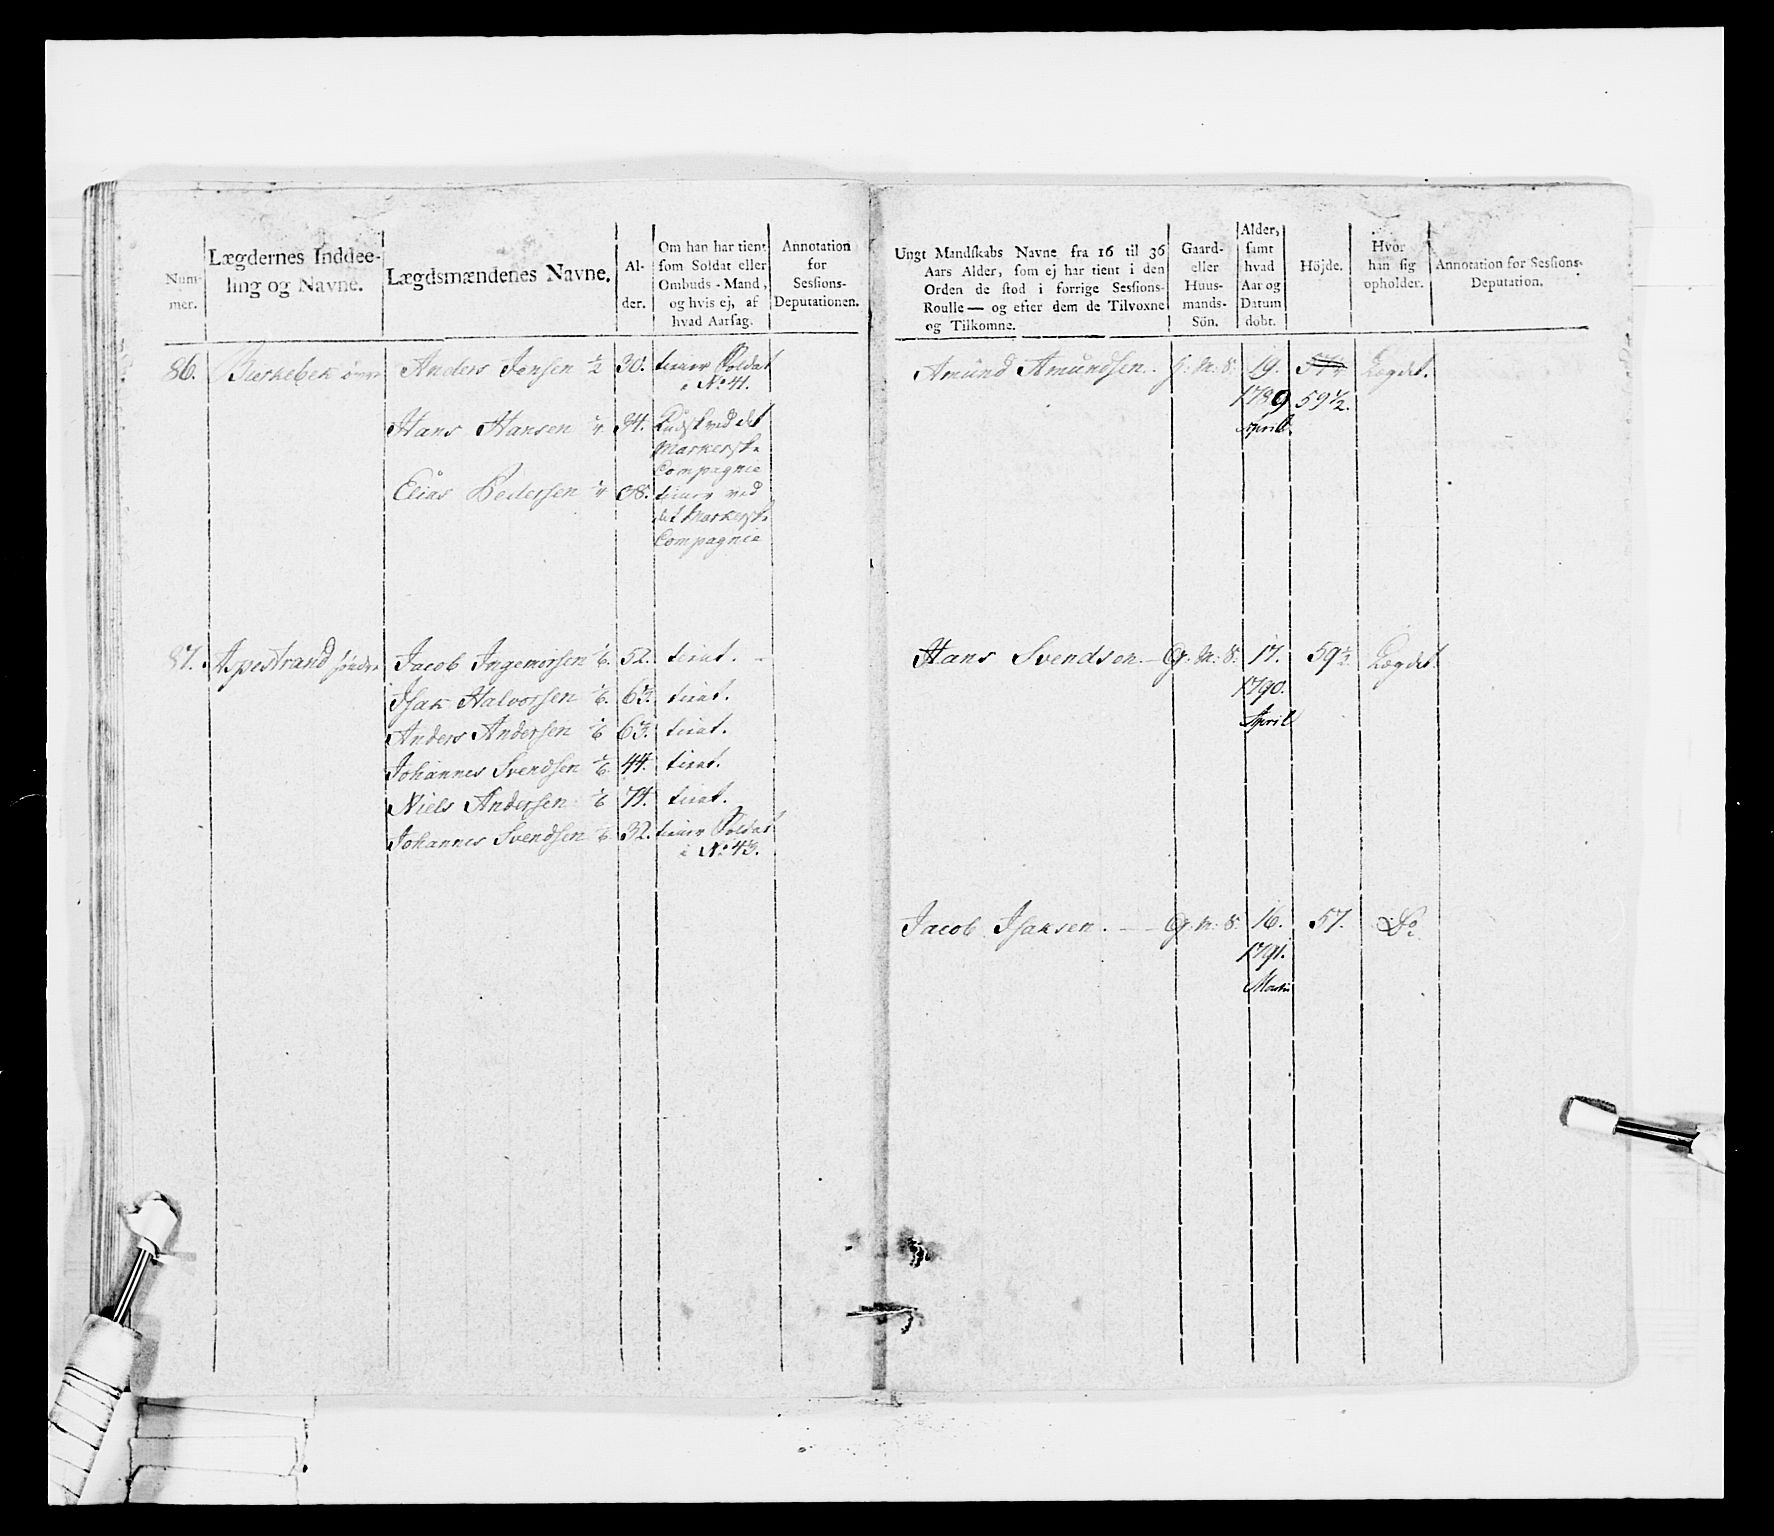 Num-
mer.
Lægdernes Inddee-
ling og Navne.
Lægdsmændenes Navne.
Al-
der.
Om han har tient
som Soldat eller
Ombuds-Mand,
og hvis ej, af
hvad Aarsag.
Annotation
for
Sessions-
Deputationen.
86. Bierkebek
Anders Jensen ½ 30. tiener Soldat
i No 41.
Hans Hansen ¼ 34. Kudsk ved det
Markersk.
Compagnie
Elias Pedersen ¼ 28. tiener ved
det Markersk.
Compagnie
87. Apestrand søndre
Jacob Ingemorsen ⅙. 52. tient. —
Isak Halvorsen ⅙. 63. tient.
Anders Andersen ⅙ 63. tient.
Johannes Svendsen ⅙. 44. tient.
Niels Andersen ⅙ 74. tient.
Johannes Svendsen ⅙. 32. tiener Soldat
i No 43.
Ungt Mandskabs Navne fra 16 til 36
Aars Alder, som ej har tient i den
Orden de stod i forrige Sessions-
Roulle — og efter dem de Tilvoxne
og Tilkomne.
Gaard-
eller
Huus-
mands-
Sön.
Alder,
samt
hvad
Aar og
Datum
döbt.
Höjde.
Hvor
han sig
opholder.
Annotation for Sessions-
Deputation.
Amund Amundsen. G: M: S: 19. Lægdet.
1789 59½.
April.
Hans Svendsen. — G: M: S: 17. 59½ Lægdet.
1790.
April
Jacob Isaksen. — G: M: S: 16. 57. Do
1791.
Martii